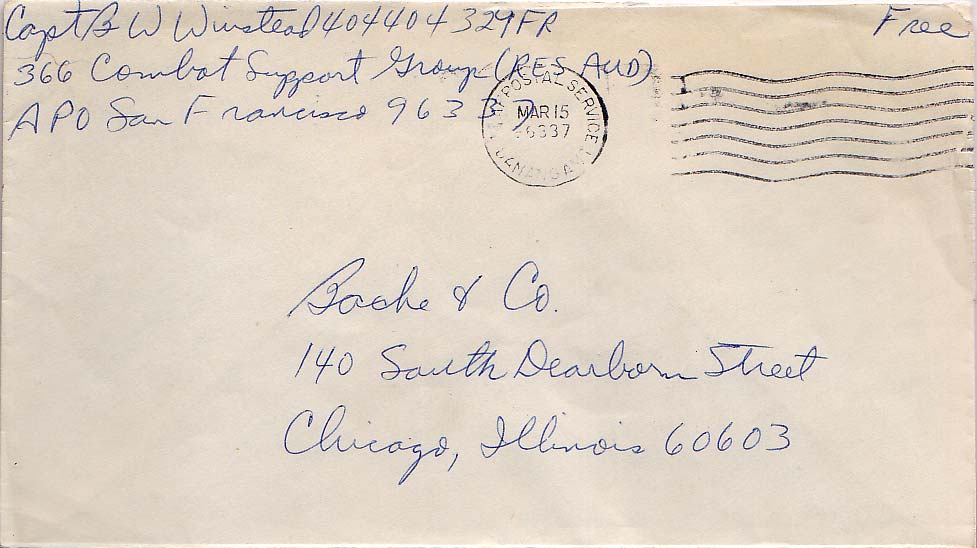 Capt B W Winstead 404404329FR
Free
366 Combat Support Group (RES AUD)
APO San Francisco 96337
POSTAL SERVICE
MAR 15
96337
DANANG
Bache & Co.
140 South Dearborn Street
Chicago, Illinois 60603